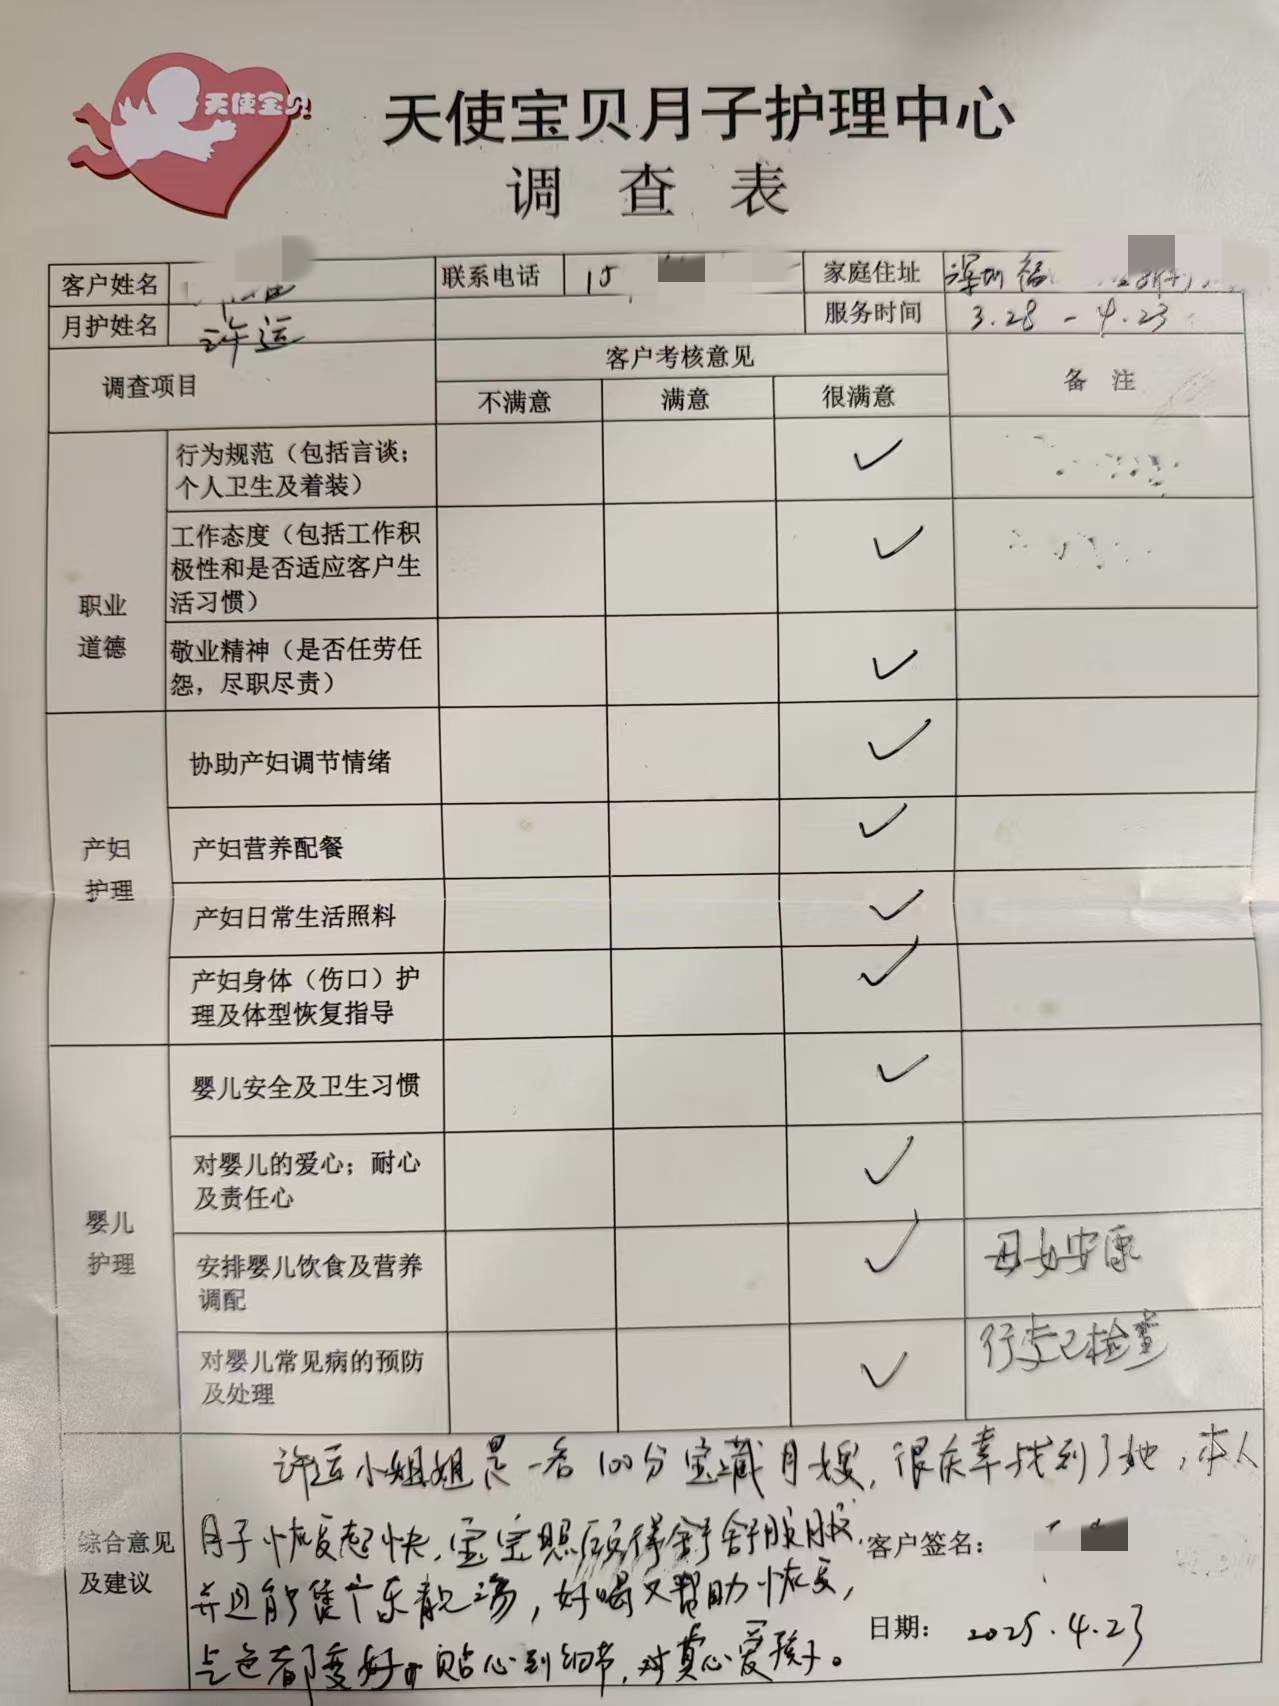 天使宝贝
天使宝贝月子护理中心
调查表
客户姓名 联系电话 15 家庭住址 深圳福
月护姓名 许运 服务时间 3.28 - 4.23
调查项目 客户考核意见 备注
不满意 满意 很满意
职业
道德
行为规范（包括言谈；
个人卫生及着装） ✓
工作态度（包括工作积
极性和是否适应客户生
活习惯） ✓
敬业精神（是否任劳任
怨，尽职尽责） ✓
产妇
护理
协助产妇调节情绪 ✓
产妇营养配餐 ✓
产妇日常生活照料 ✓
产妇身体（伤口）护
理及体型恢复指导 ✓
婴儿
护理
婴儿安全及卫生习惯 ✓
对婴儿的爱心；耐心
及责任心 ✓
安排婴儿饮食及营养
调配 ✓ 母女安康
对婴儿常见病的预防
及处理 ✓ 行李已检查
综合意见
及建议
许运小姐姐是一名100分宝藏月嫂，很庆幸找到了她，本人
月子恢复超快，宝宝照顾得舒舒服服，
并且能煲广东靓汤，好喝又帮助恢复，
气色都变好。贴心到细节，对真心爱孩子。
客户签名：
日期： 2025.4.23